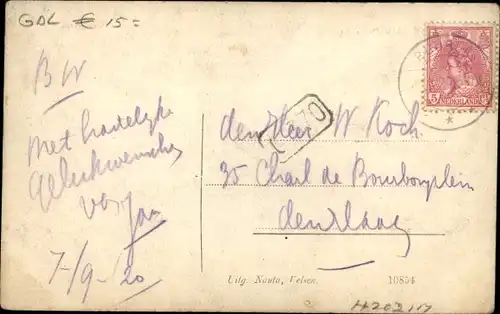 GDL € 15=
5 NEDERLAND 5
BW
Met hartelijke
Gelukwenschen
van Jan
7-/9-20
den Heer W Koch.
35 Charl de Bourbonplein
den Haag
Uitg. Nauta, Velsen. 10854
H202117